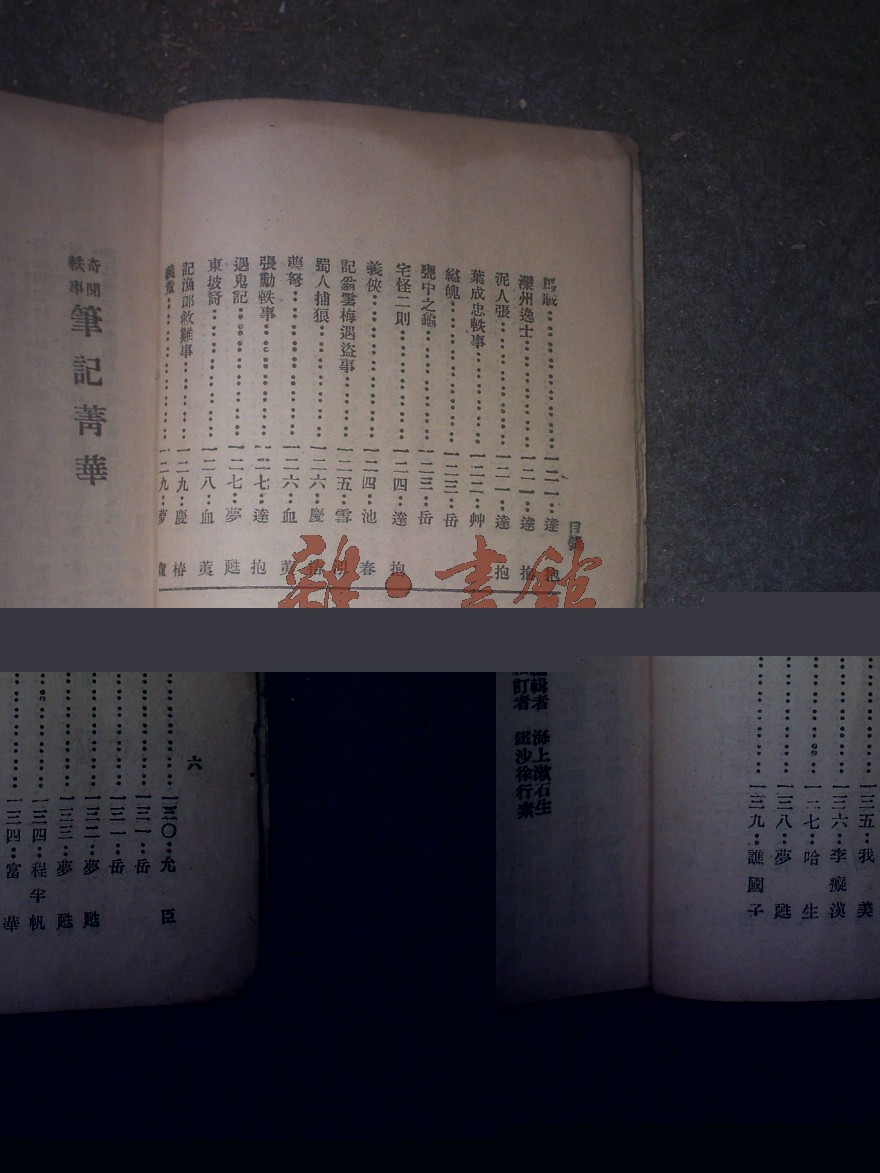 目錄
馬賊 一二一 達抱
灤州逸士 一二一 達抱
泥人張 一二一 達抱
葉成忠軼事 一二二 艸
縊魄 一二三 岳
甕中之 一二三 岳
宅怪二則 一二四 達抱
義俠 一二四 池春
記翁雲梅遇盜事 一二五 雪
蜀人捕狼 一二六 慶椿
一二六 血荑
張勳軼事 一二七 達抱
遇鬼記 一二七 夢甦
東坡 一二八 血荑
記漁郎救難事 一二九 慶椿
義 一二九 夢
奇聞軼事 筆記菁華
雜·書館
六
一三〇 尤臣
一三一 岳
一三一 岳
一三二 夢甦
一三三 夢甦
一三四 程半帆
一三四 富華
一三五 我美
一三六 李癡漢
一二七 哈生
一三八 夢甦
一三九 譙國子
編輯者 海上漱石生
校訂者 鐵沙徐行素